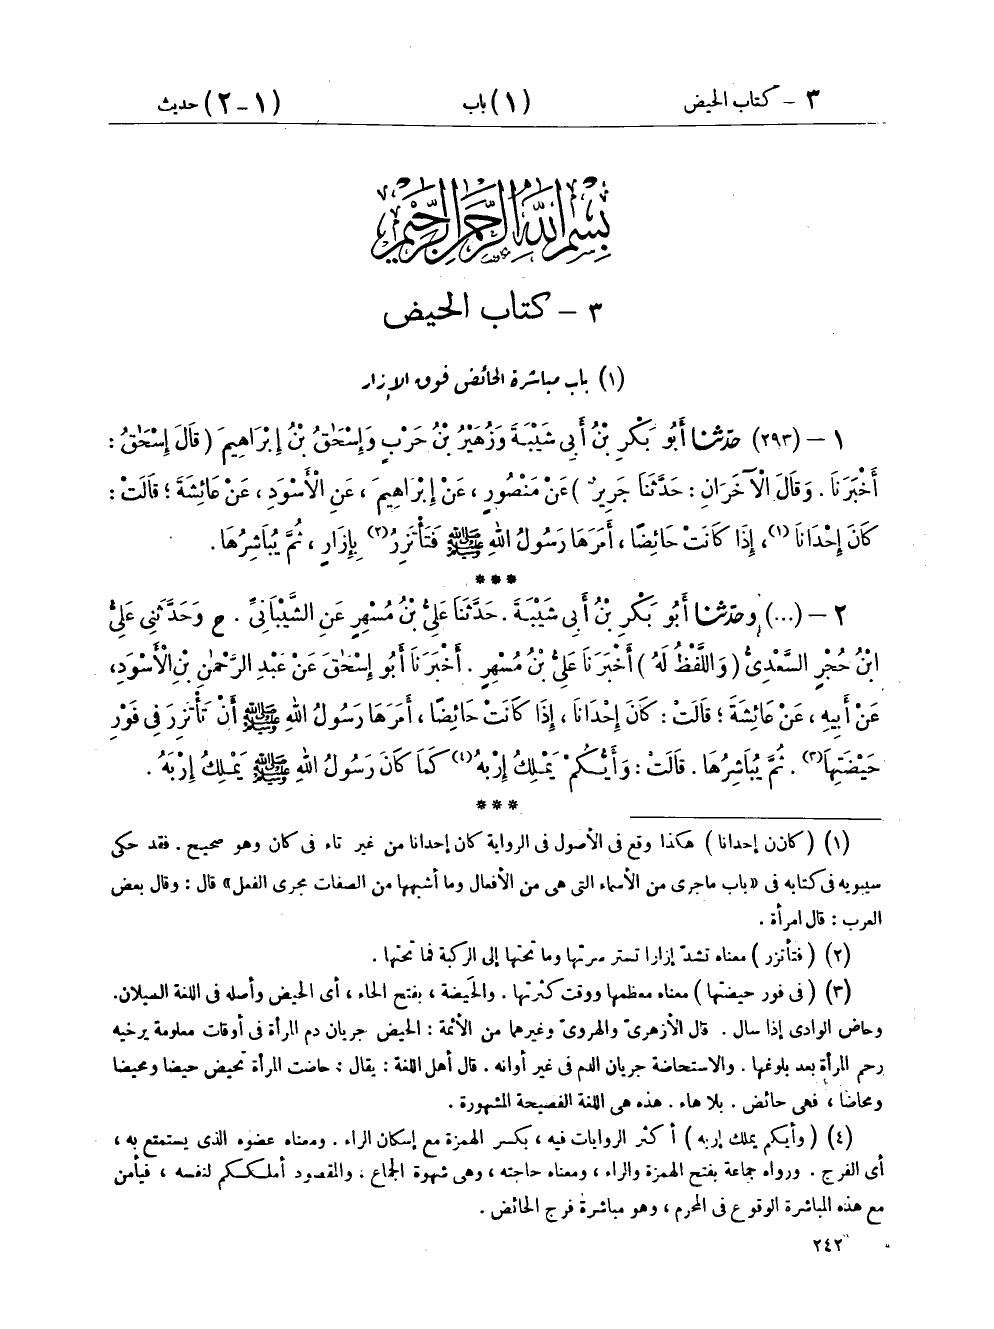 ٣ – كتاب الحيض (١) باب (١–٢) حديث
بِسْمِ اللهِ الرَّحْمٰنِ الرَّحِيْمِ
٣ – كتاب الحيض
(١) باب مباشرة الحائض فوق الإزار
١ – (٢٩٣) حدّثنا أَبُو بَكْرِ بْنُ أَبِي شَيْبَةَ وَزُهَيْرُ بْنُ حَرْبٍ وَإِسْحَٰقُ بْنُ إِبْرَاهِيمَ ( قَالَ إِسْحَٰقُ :
أَخْبَرَنَا . وَقَالَ الْآخَرَانِ : حَدَّثَنَا جَرِيرٌ ) عَنْ مَنْصُورٍ ، عَنْ إِبْرَاهِيمَ ، عَنِ الْأَسْوَدِ ، عَنْ عَائِشَةَ ؛ قَالَتْ :
كَانَ إِحْدَانَا (١)، إِذَا كَانَتْ حَائِضًا ، أَمَرَهَا رَسُولُ اللهِ ﷺ فَتَأْتَزِرُ (٢) بِإِزَارٍ ، ثُمَّ يُبَاشِرُهَا .
***
٢ – (...) وحدّثنا أَبُو بَكْرِ بْنُ أَبِي شَيْبَةَ . حَدَّثَنَا عَلِيُّ بْنُ مُسْهِرٍ عَنِ الشَّيْبَانِيِّ . ح وَحَدَّثَنِي عَلِيُّ
ابْنُ حُجْرٍ السَّعْدِيُّ ( وَاللَّفْظُ لَهُ ) أَخْبَرَنَا عَلِيُّ بْنُ مُسْهِرٍ . أَخْبَرَنَا أَبُو إِسْحَٰقَ عَنْ عَبْدِ الرَّحْمٰنِ بْنِ الْأَسْوَدِ،
عَنْ أَبِيهِ ، عَنْ عَائِشَةَ ؛ قَالَتْ : كَانَ إِحْدَانَا ، إِذَا كَانَتْ حَائِضًا ، أَمَرَهَا رَسُولُ اللهِ ﷺ أَنْ تَأْتَزِرَ فِي فَوْرِ
حَيْضَتِهَا (٣) . ثُمَّ يُبَاشِرُهَا . قَالَتْ : وَأَيُّكُمْ يَمْلِكُ إِرْبَهُ (٤) كَمَا كَانَ رَسُولُ اللهِ ﷺ يَمْلِكُ إِرْبَهُ .
***
(١) ( كان إحدانا ) هكذا وقع فى الأصول فى الرواية كان إحدانا من غير تاء فى كان وهو صحيح . فقد حكى
سيبويه فى كتابه فى «باب ماجرى من الأسماء التى هى من الأفعال وما أشبهها من الصفات مجرى الفعل» قال : وقال بعض
العرب : قال امرأة .
(٢) ( فتأتزر ) معناه تشدّ إزارا تستر سرتها وما تحتها إلى الركبة فما تحتها .
(٣) ( فى فور حيضتها ) معناه معظمها ووقت كثرتها . والحَيضة ، بفتح الحاء ، أى الحيض وأصله فى اللغة السيلان.
وحاض الوادى إذا سال . قال الأزهرىّ والهروىّ وغيرهما من الأئمة : الحيض جريان دم المرأة فى أوقات معلومة يرخيه
رحم المرأة بعد بلوغها . والاستحاضة جريان الدم فى غير أوانه . قال أهل اللغة : يقال : حاضت المرأة تحيض حيضا ومحيضا
ومحاضا ، فهى حائض . بلا هاء . هذه هى اللغة الفصيحة المشهورة .
(٤) ( وأيكم يملك إربه ) أكثر الروايات فيه ، بكسر الهمزة مع إسكان الراء . ومعناه عضوه الذى يستمتع به ،
أى الفرج . ورواه جماعة بفتح الهمزة والراء ، ومعناه حاجته ، وهى شهوة الجماع . والمقصود أملككم لنفسه ، فيأمن
مع هذه المباشرة الوقوع فى المحرم ، وهو مباشرة فرج الحائض .
٢٤٢